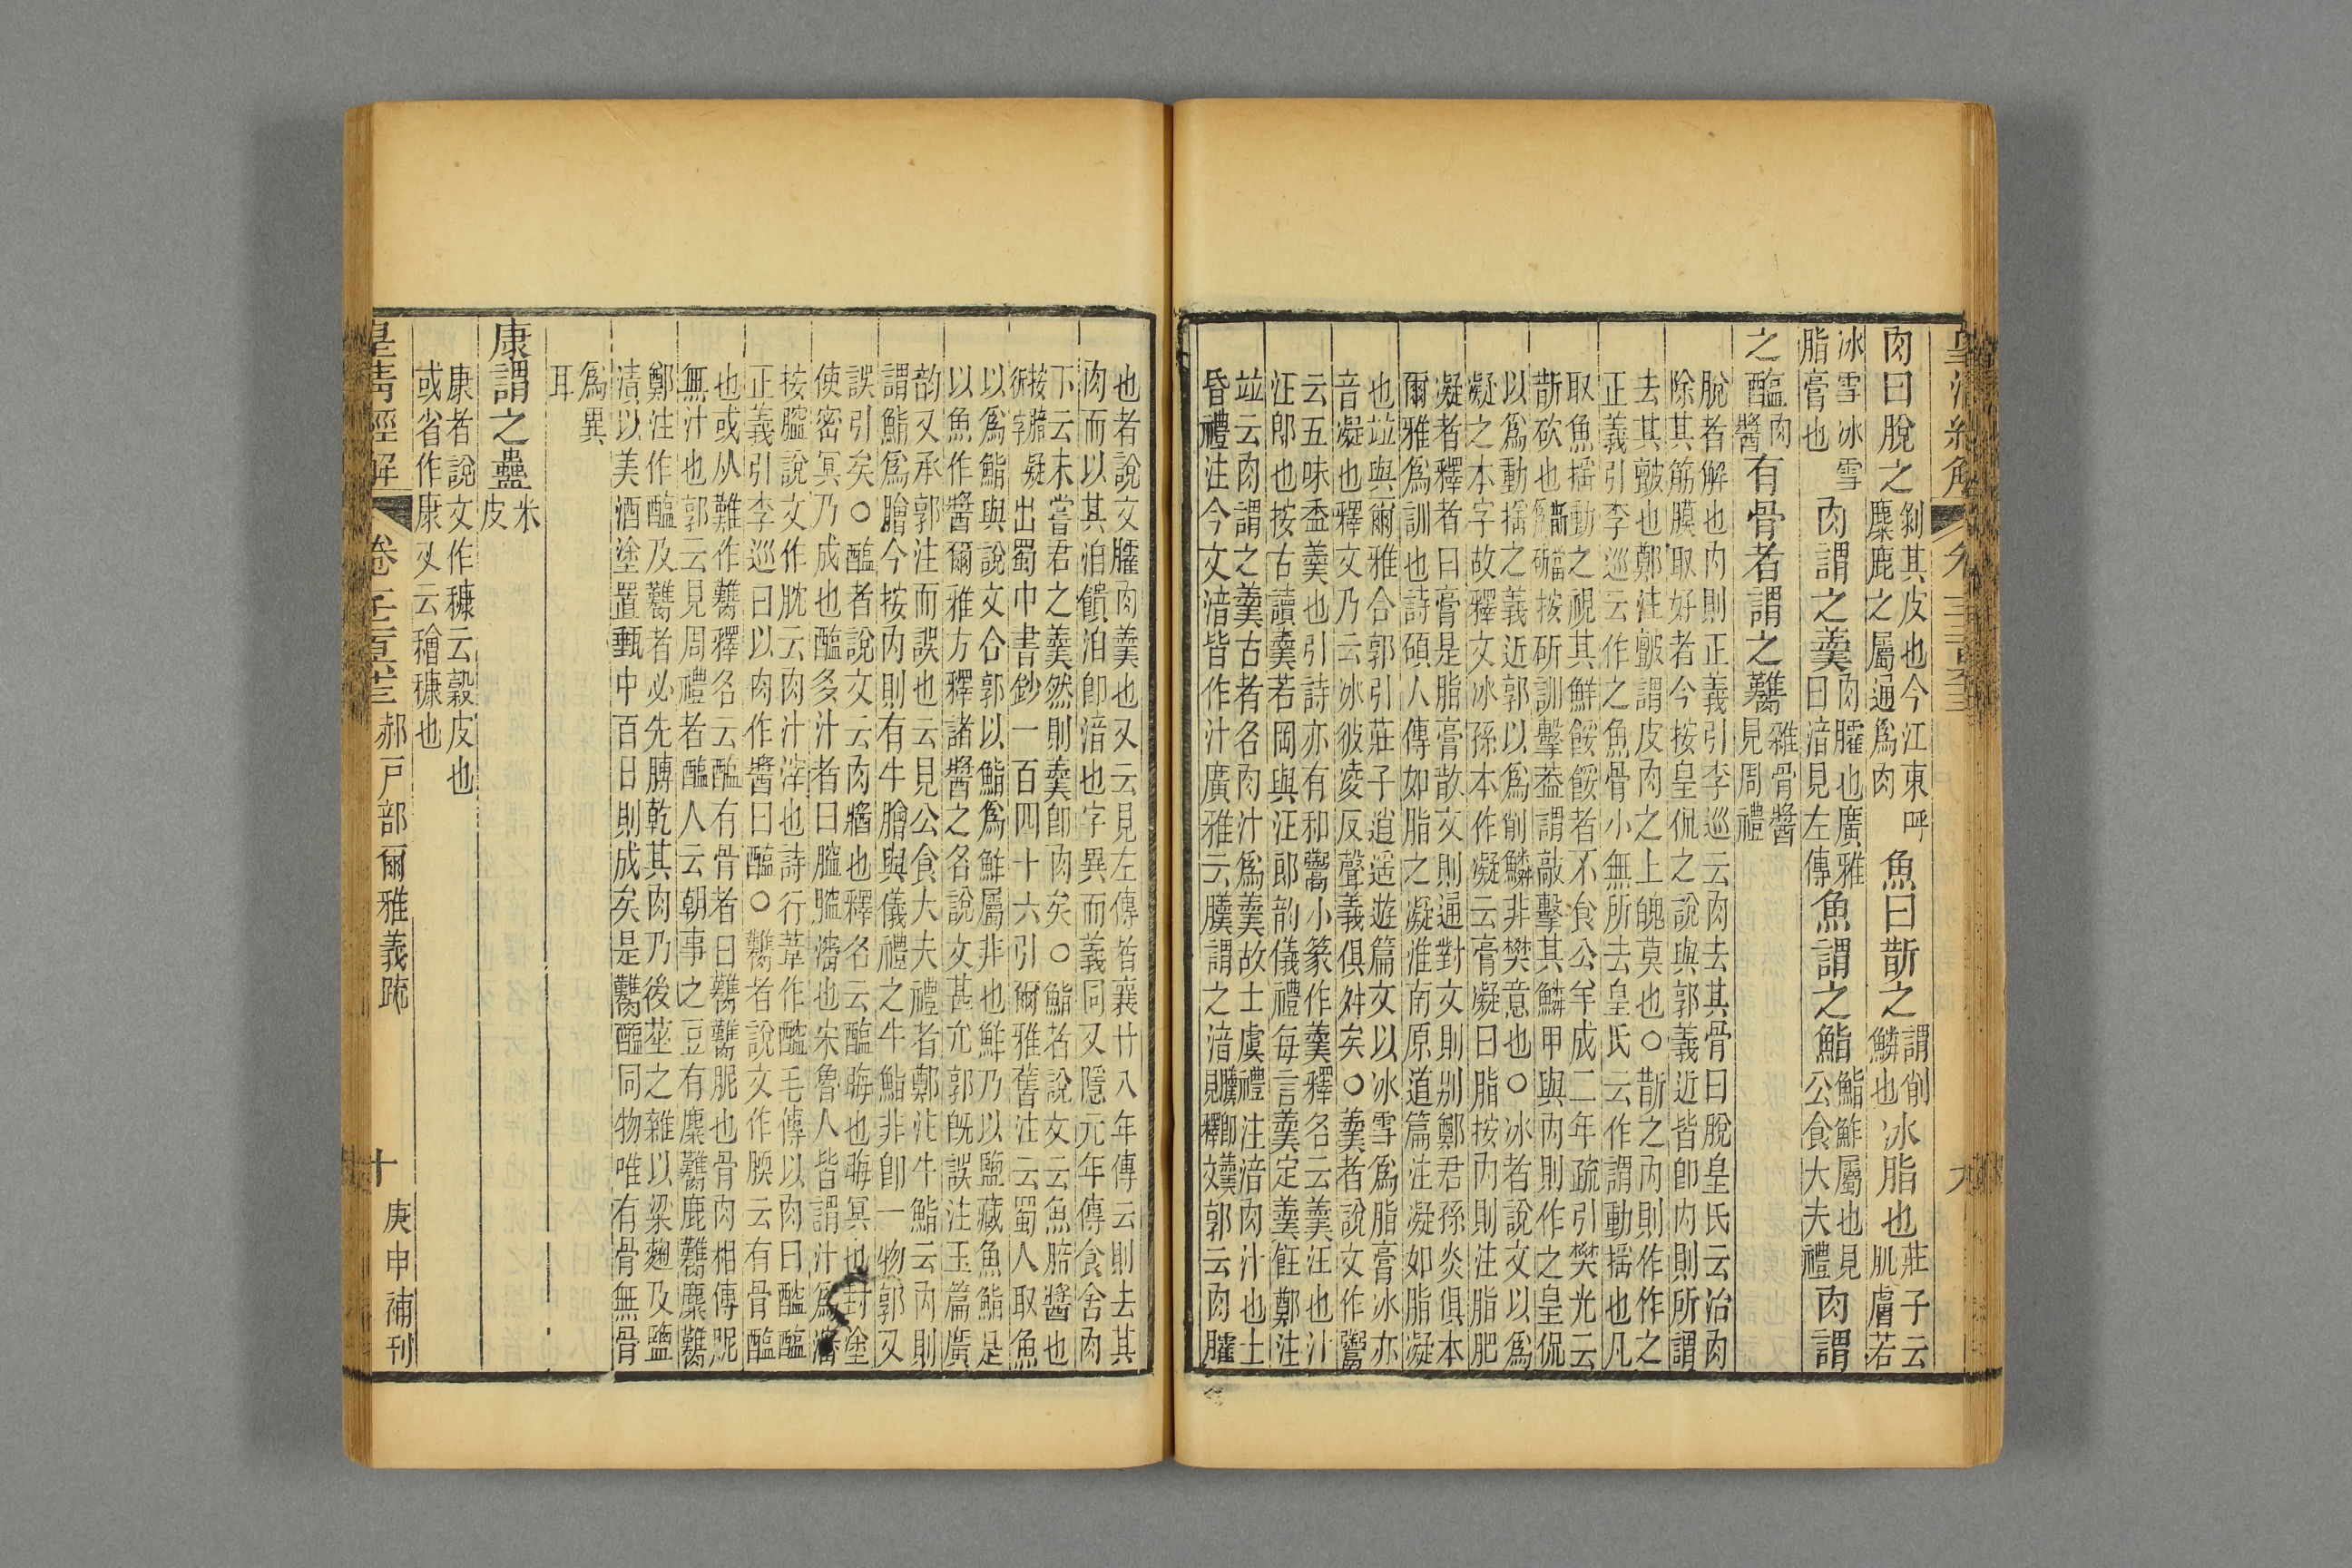 皇清經解
卷
九
肉曰脫之剝其皮也今江東呼麋鹿之屬通爲肉魚曰斮之謂削鱗也冰脂也莊子云肌膚若
冰雪冰雪脂膏也肉謂之羹肉臛也廣雅曰湆見左傳魚謂之鮨鮨鮓屬也見公食大夫禮肉謂
之醢肉醬有骨者謂之臡雜骨醬見周禮
脫者解也内則正義引李巡云肉去其骨曰脫皇氏云治肉
除其筋膜取好者今按皇侃之說與郭義近皆卽内則所謂
去其皽也鄭注皽謂皮肉之上魄莫也○斮之内則作作之
正義引李巡云作之魚骨小無所去皇氏云作謂動摇也凡
取魚摇動之視其鮮餒餒者不食公羊成二年疏引樊光云
斮砍也按斫訓擊葢謂敲擊其鱗甲與内則作之皇侃
以爲動摇之義近郭以爲削鱗非樊意也○冰者說文以爲
凝之本字故釋文冰孫本作凝云膏凝曰脂按内則注脂肥
凝者釋者曰膏是脂膏散文則通對文則别鄭君孫炎俱本
爾雅爲訓也詩碩人傳如脂之凝淮南原道篇注凝如脂凝
也竝與爾雅合郭引莊子逍遥遊篇文以冰雪爲脂膏冰亦
音凝也釋文乃云冰彼凌反聲義俱舛矣○羹者說文作䰞
云五味盉羹也引詩亦有和䰞小篆作羹釋名云羹汪也汁
汪郎也按古讀羹若岡與汪郎韵儀禮每言羹定羹飪鄭注
竝云肉謂之羹古者名肉汁爲羹故士虞禮注湆肉汁也士
昏禮注今文湆皆作汁廣雅云膭謂之湆見釋文郭云肉臛
也者說文臛肉羹也又云見左傳者襄廿八年傳云則去其
肉而以其洎饋洎卽湆也字異而義同又隱元年傳食舍肉
下云未嘗君之羹然則羹卽肉矣○鮨者說文云魚䏽醬也
出蜀中書鈔一百四十六引爾雅舊注云蜀人取魚
以爲鮨與說文合郭以鮨爲鮓屬非也鮓乃以鹽藏魚鮨是
以魚作醬爾雅方釋諸醬之名說文甚允郭旣誤注玉篇廣
韵又承郭注而誤也云見公食大夫禮者鄭注牛鮨云内則
謂鮨爲膾今按内則有牛膾與儀禮之牛鮨非卽一物郭又
誤引矣○醢者說文云肉醬也釋名云醢晦也晦冥也封塗
使密冥乃成也醢多汁者曰䤈䤈瀋也宋魯人皆謂汁爲瀋
按䤈說文作肬云肉汁滓也詩行葦作醓毛傳以肉曰醓醢
正義引李巡曰以肉作醬曰醢○臡者說文作腝云有骨醢
也或从難作臡釋名云醢有骨者曰臡臡胒也骨肉相傳胒
無汁也郭云見周禮者醢人云朝事之豆有麋臡鹿臡麇臡
鄭注作醢及臡者必先膊乾其肉乃後莝之雜以粱麴及鹽
漬以美酒塗置甀中百日則成矣是臡醢同物唯有骨無骨
爲異
耳
康謂之蠱米皮
康者說文作穅云榖皮也
或省作康又云穭穅也
皇清經解
郝戶部爾雅義疏
十
庚申補刊